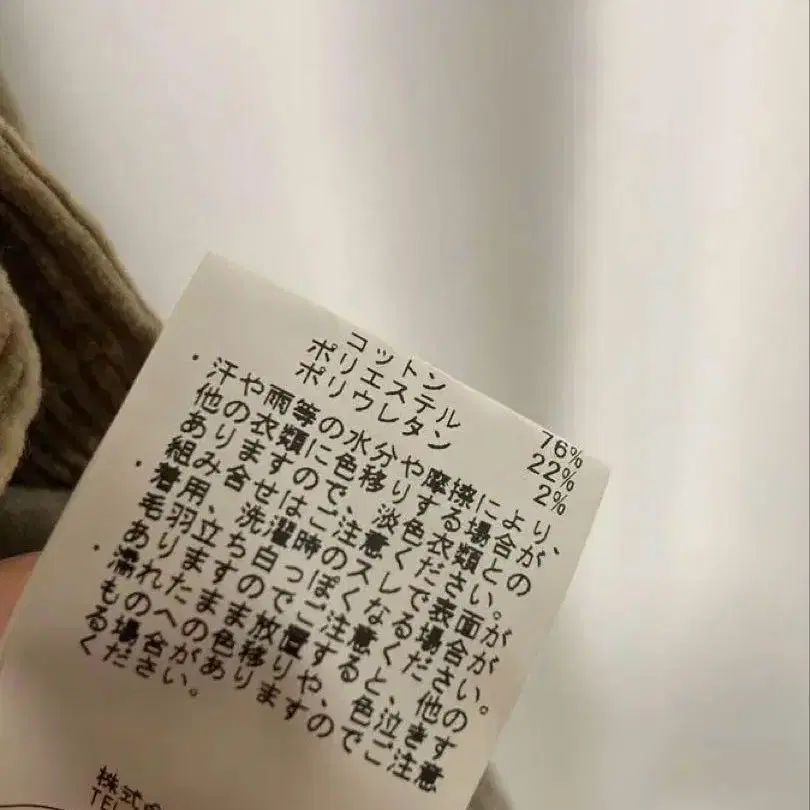 コットン 76%
ポリエステル 22%
ポリウレタン 2%
・汗や雨等の水分や摩擦により、
他の衣類に色移りする場合が
ありますので、淡色衣類との
組み合せはご注意ください。
・着用、洗濯時のスレで表面が
毛羽立ち白っぽくなる場合が
ありますのでご注意ください。
・濡れたまま放置すると、他の
ものへの色移りや、色泣きす
る場合がありますのでご注意
ください。
株式会
TEL